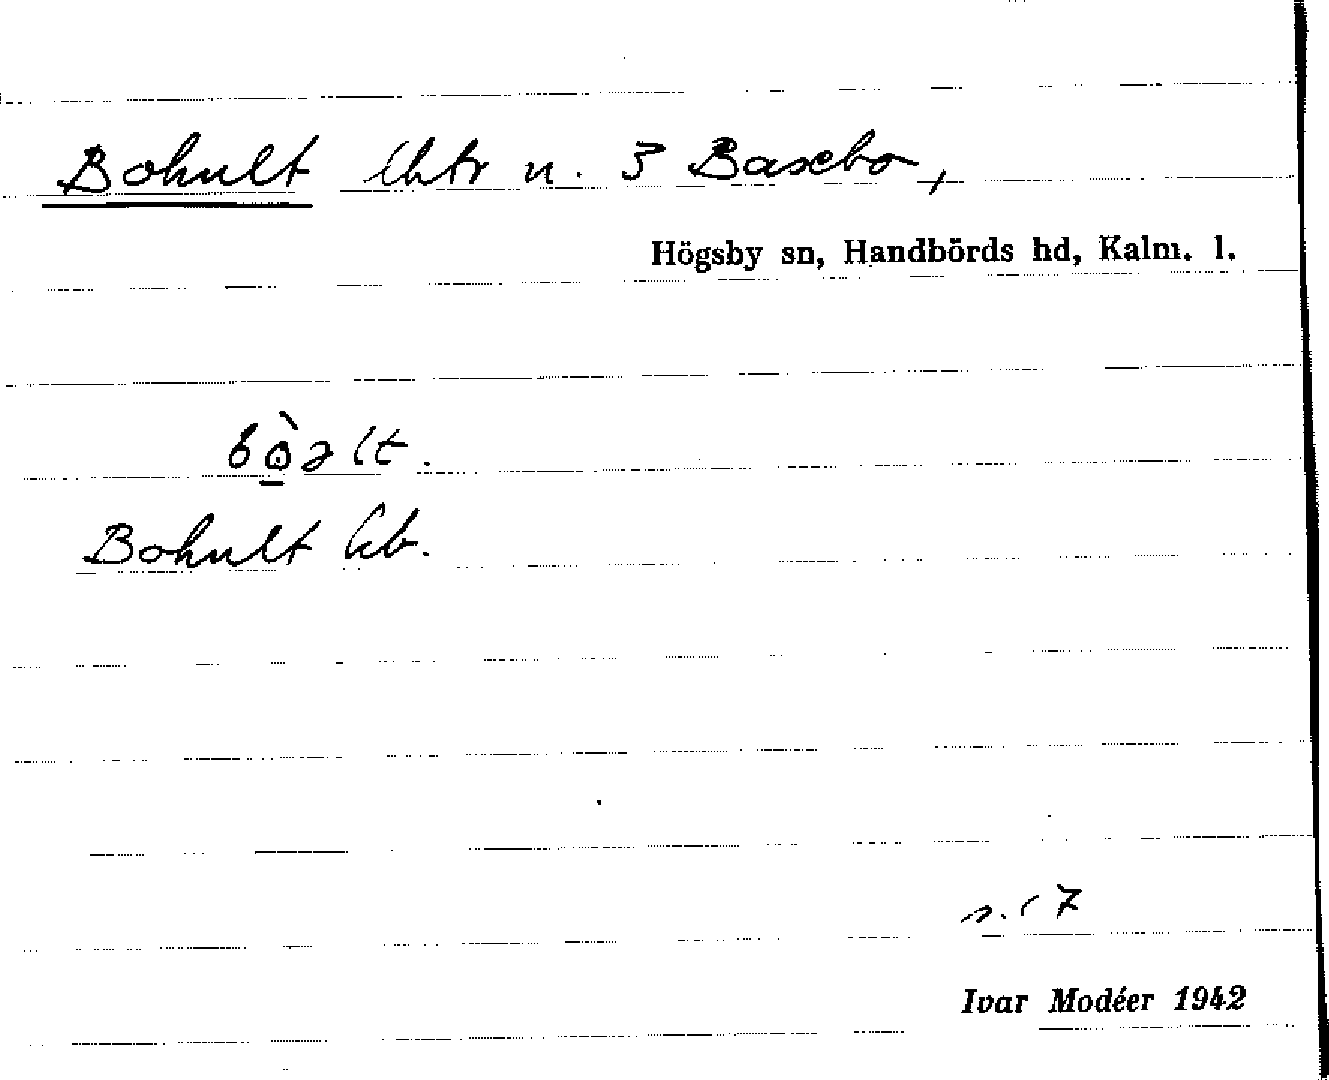 Bohult lhtr u. 3 Basebo,
Högsby sn, Handbörds hd, Kalm. l.
Bohult kb.
s. 17
Ivar Modéer 1942